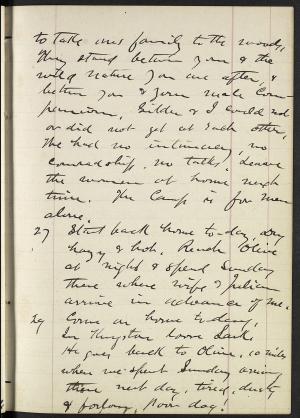 to take ones family to the woods,
They stand between you & the
wild nature you are after, &
between you & your male com-
panions, Gilder & I could not
or did not get at each other,
We had no intimacy, no
comradship, no talks. Leave
the women at home next
time. The Camp is for men
alone.
27 Start back home to-day, very
hazy & hot. Reach Olive
at night & spend Sunday
there where wife & Julian
arrive in advance of me.
29 Come on home to-day,
In Kingston loose Lark.
He goes back to Olive, 12 miles
where we spent Sunday arriving
there next day, tired, dusty
& forlorn, Poor dog!